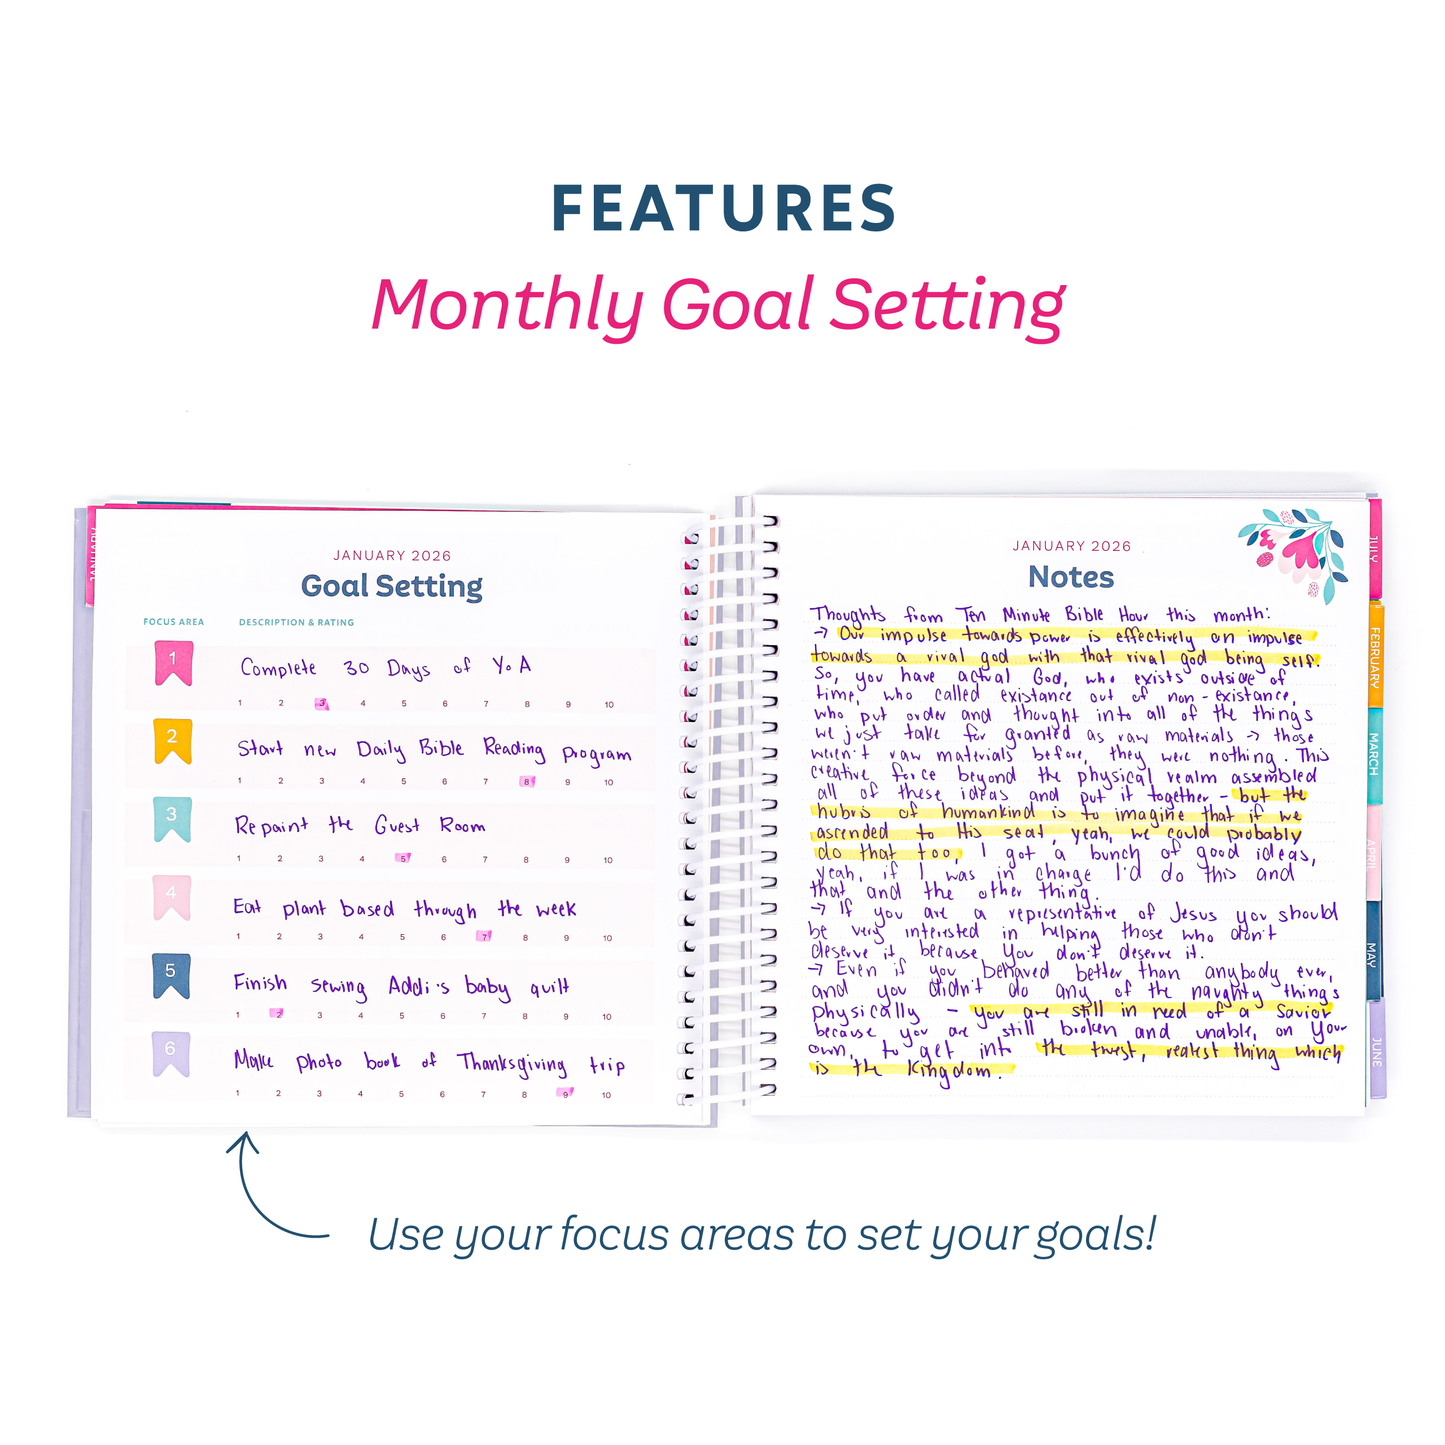 FEATURES
Monthly Goal Setting
JANUARY
JANUARY 2026
Goal Setting
FOCUS AREA DESCRIPTION & RATING
1 Complete 30 Days of YoA
1 2 3 4 5 6 7 8 9 10
2 Start new Daily Bible Reading program
1 2 3 4 5 6 7 8 9 10
3 Repaint the Guest Room
1 2 3 4 5 6 7 8 9 10
4 Eat plant based through the week
1 2 3 4 5 6 7 8 9 10
5 Finish sewing Addi's baby quilt
1 2 3 4 5 6 7 8 9 10
6 Make photo book of Thanksgiving trip
1 2 3 4 5 6 7 8 9 10
JANUARY 2026
Notes
Thoughts from Ten Minute Bible Hour this month:
→ Our impulse towards power is effectively an impulse
towards a rival god with that rival god being self.
So, you have actual God, who exists outside of
time, who called existance out of non-existance,
who put order and thought into all of the things
we just take for granted as raw materials → those
weren't raw materials before, they were nothing. This
creative force beyond the physical realm assembled
all of these ideas and put it together - but the
hubris of humankind is to imagine that if we
ascended to His seat, yeah, we could probably
do that too, I got a bunch of good ideas,
yeah, if I was in charge I'd do this and
that and the other thing.
→ If you are a representative of Jesus you should
be very interested in helping those who don't
deserve it because you don't deserve it.
→ Even if you behaved better than anybody ever,
and you didn't do any of the naughty things
physically - you are still in need of a Savior
because you are still broken and unable, on your
own, to get into the truest, realest thing which
is the Kingdom.
JULY
FEBRUARY
MARCH
APRIL
MAY
JUNE
Use your focus areas to set your goals!